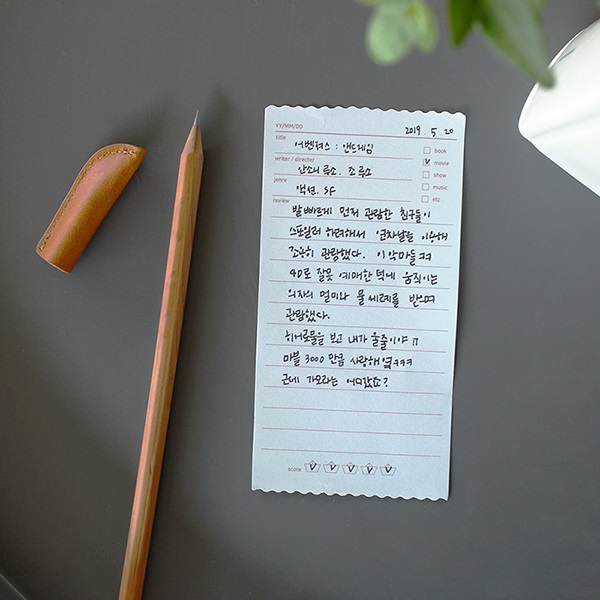 YY/MM/DD 2019 5 20
title 어벤져스 : 앤드게임
book
writer / directer 안소니 루소. 조 루소
movie
show
jenre 액션. SF
music
review
etc
발빠르게 먼저 관람한 친구들이
스포일러 하려해서 연차날을 이용해
조용히 관람했다. 이 악마들ㅋㅋ
4D로 잘못 예매한 덕에 움직이는
의자의 멀미와 물 세례를 받으며
관람했다.
히어로물을 보고 내가 울줄이야 ㅠ
마블 3000 만큼 사랑해 ㅋㅋㅋ
근데 가모라는 어디갔죠?
score